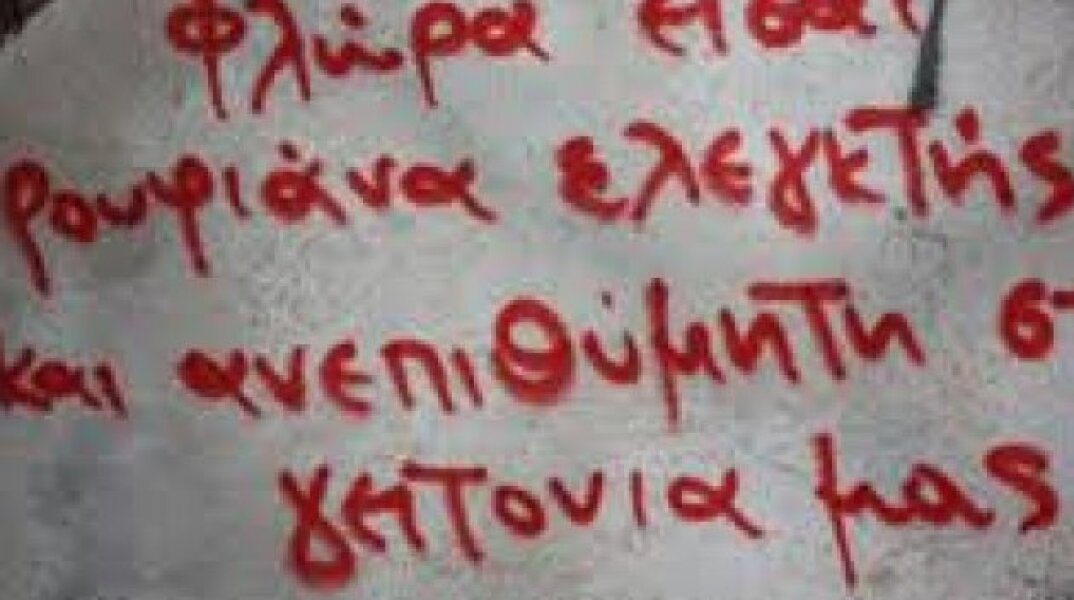 Φλώρα είσαι
ρουφιάνα ελεγκτής
και ανεπιθύμητη σ
γειτονια μας